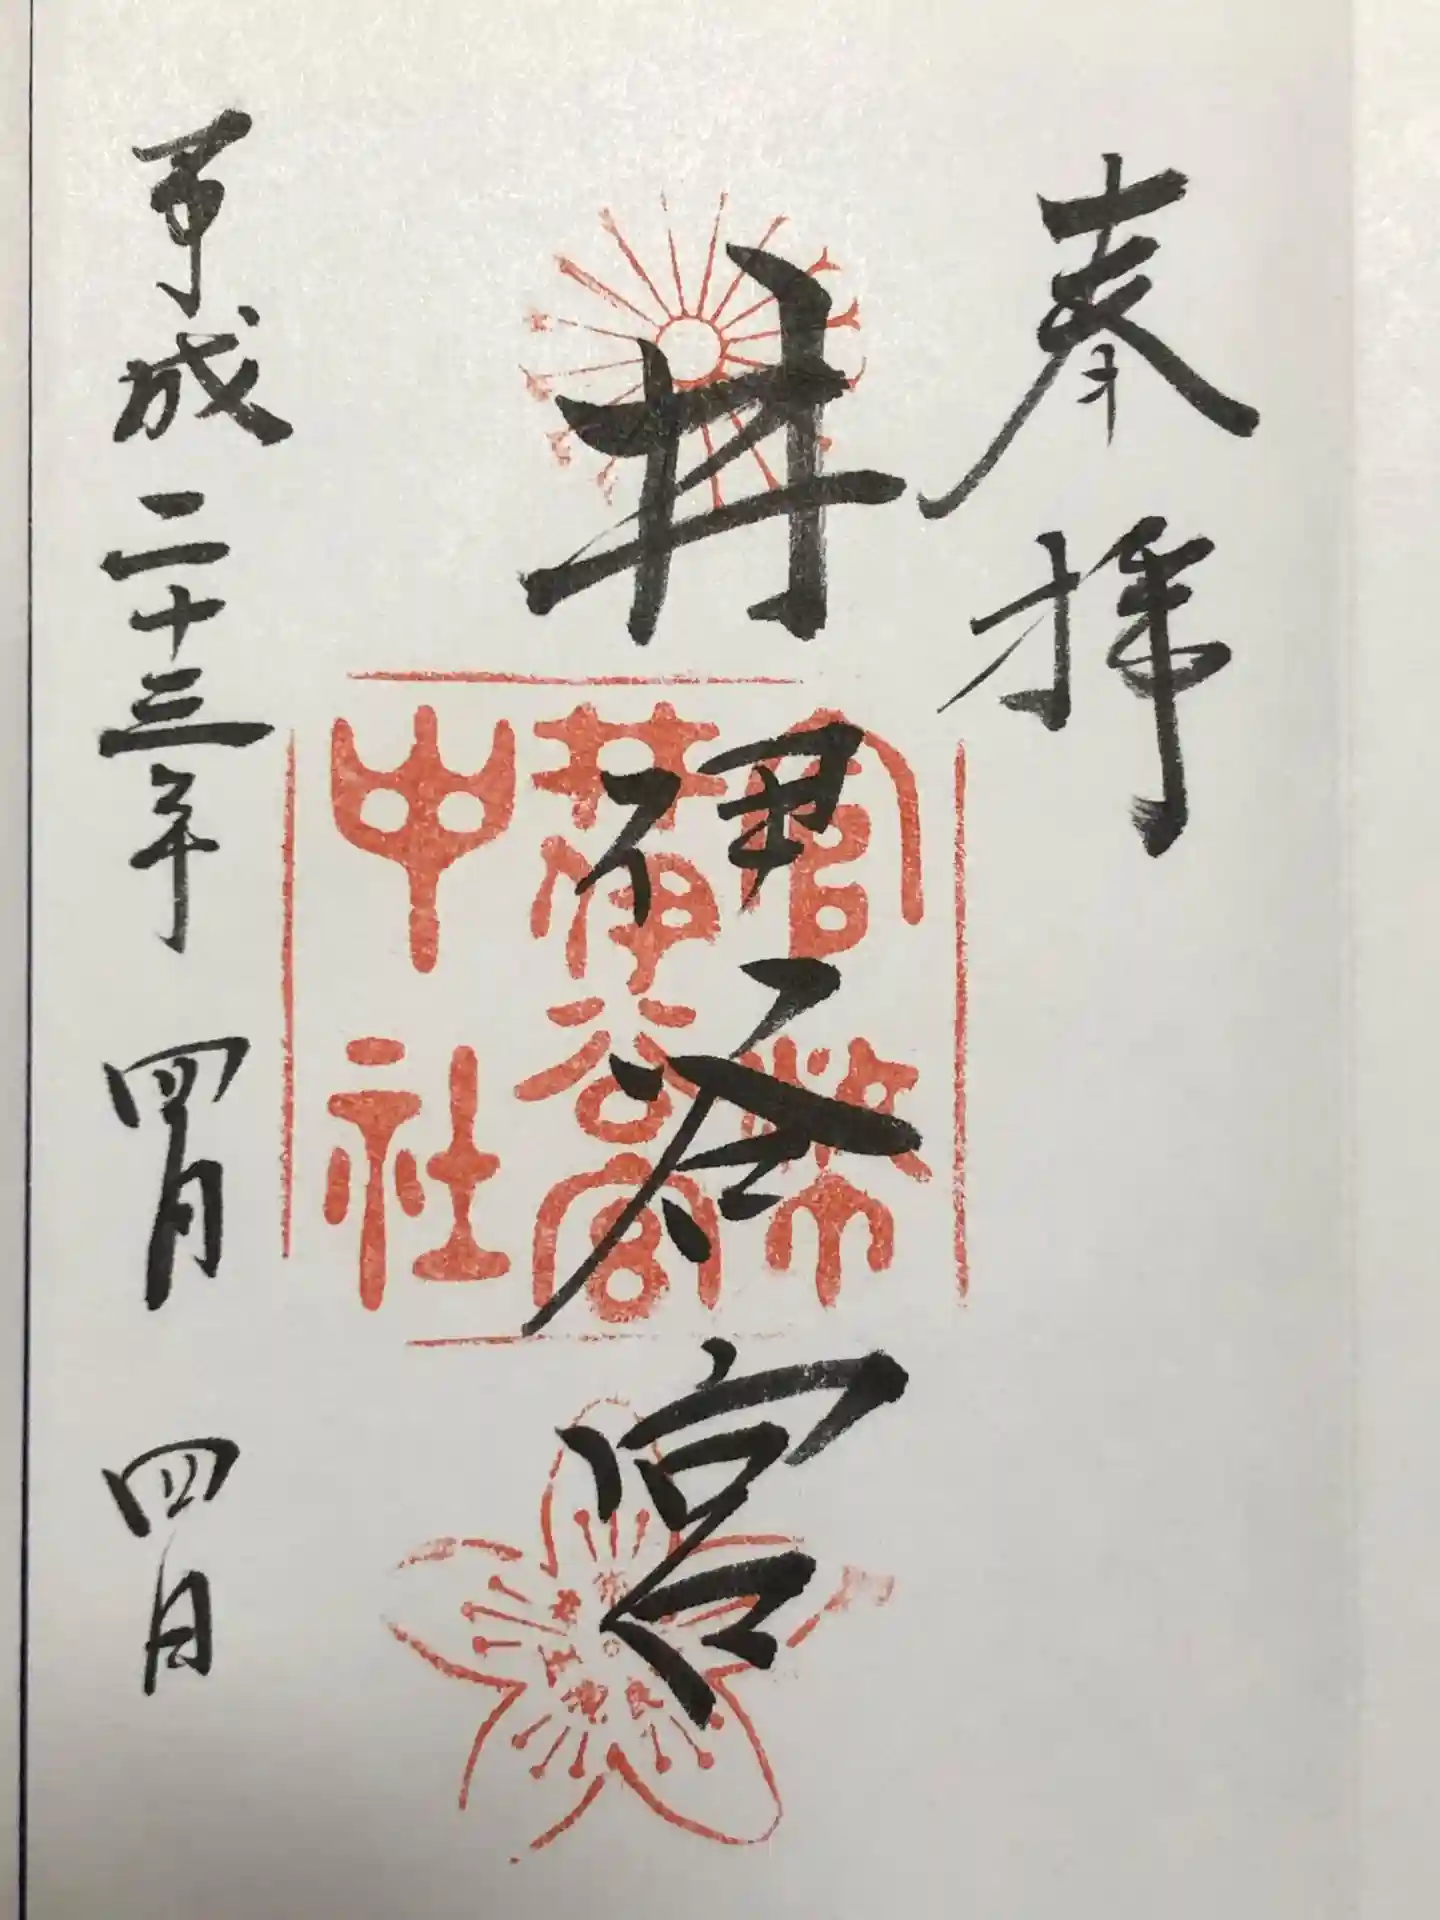 奉拝
井伊谷宮
官幣
井伊谷宮
中社
平成二十三年四月四日